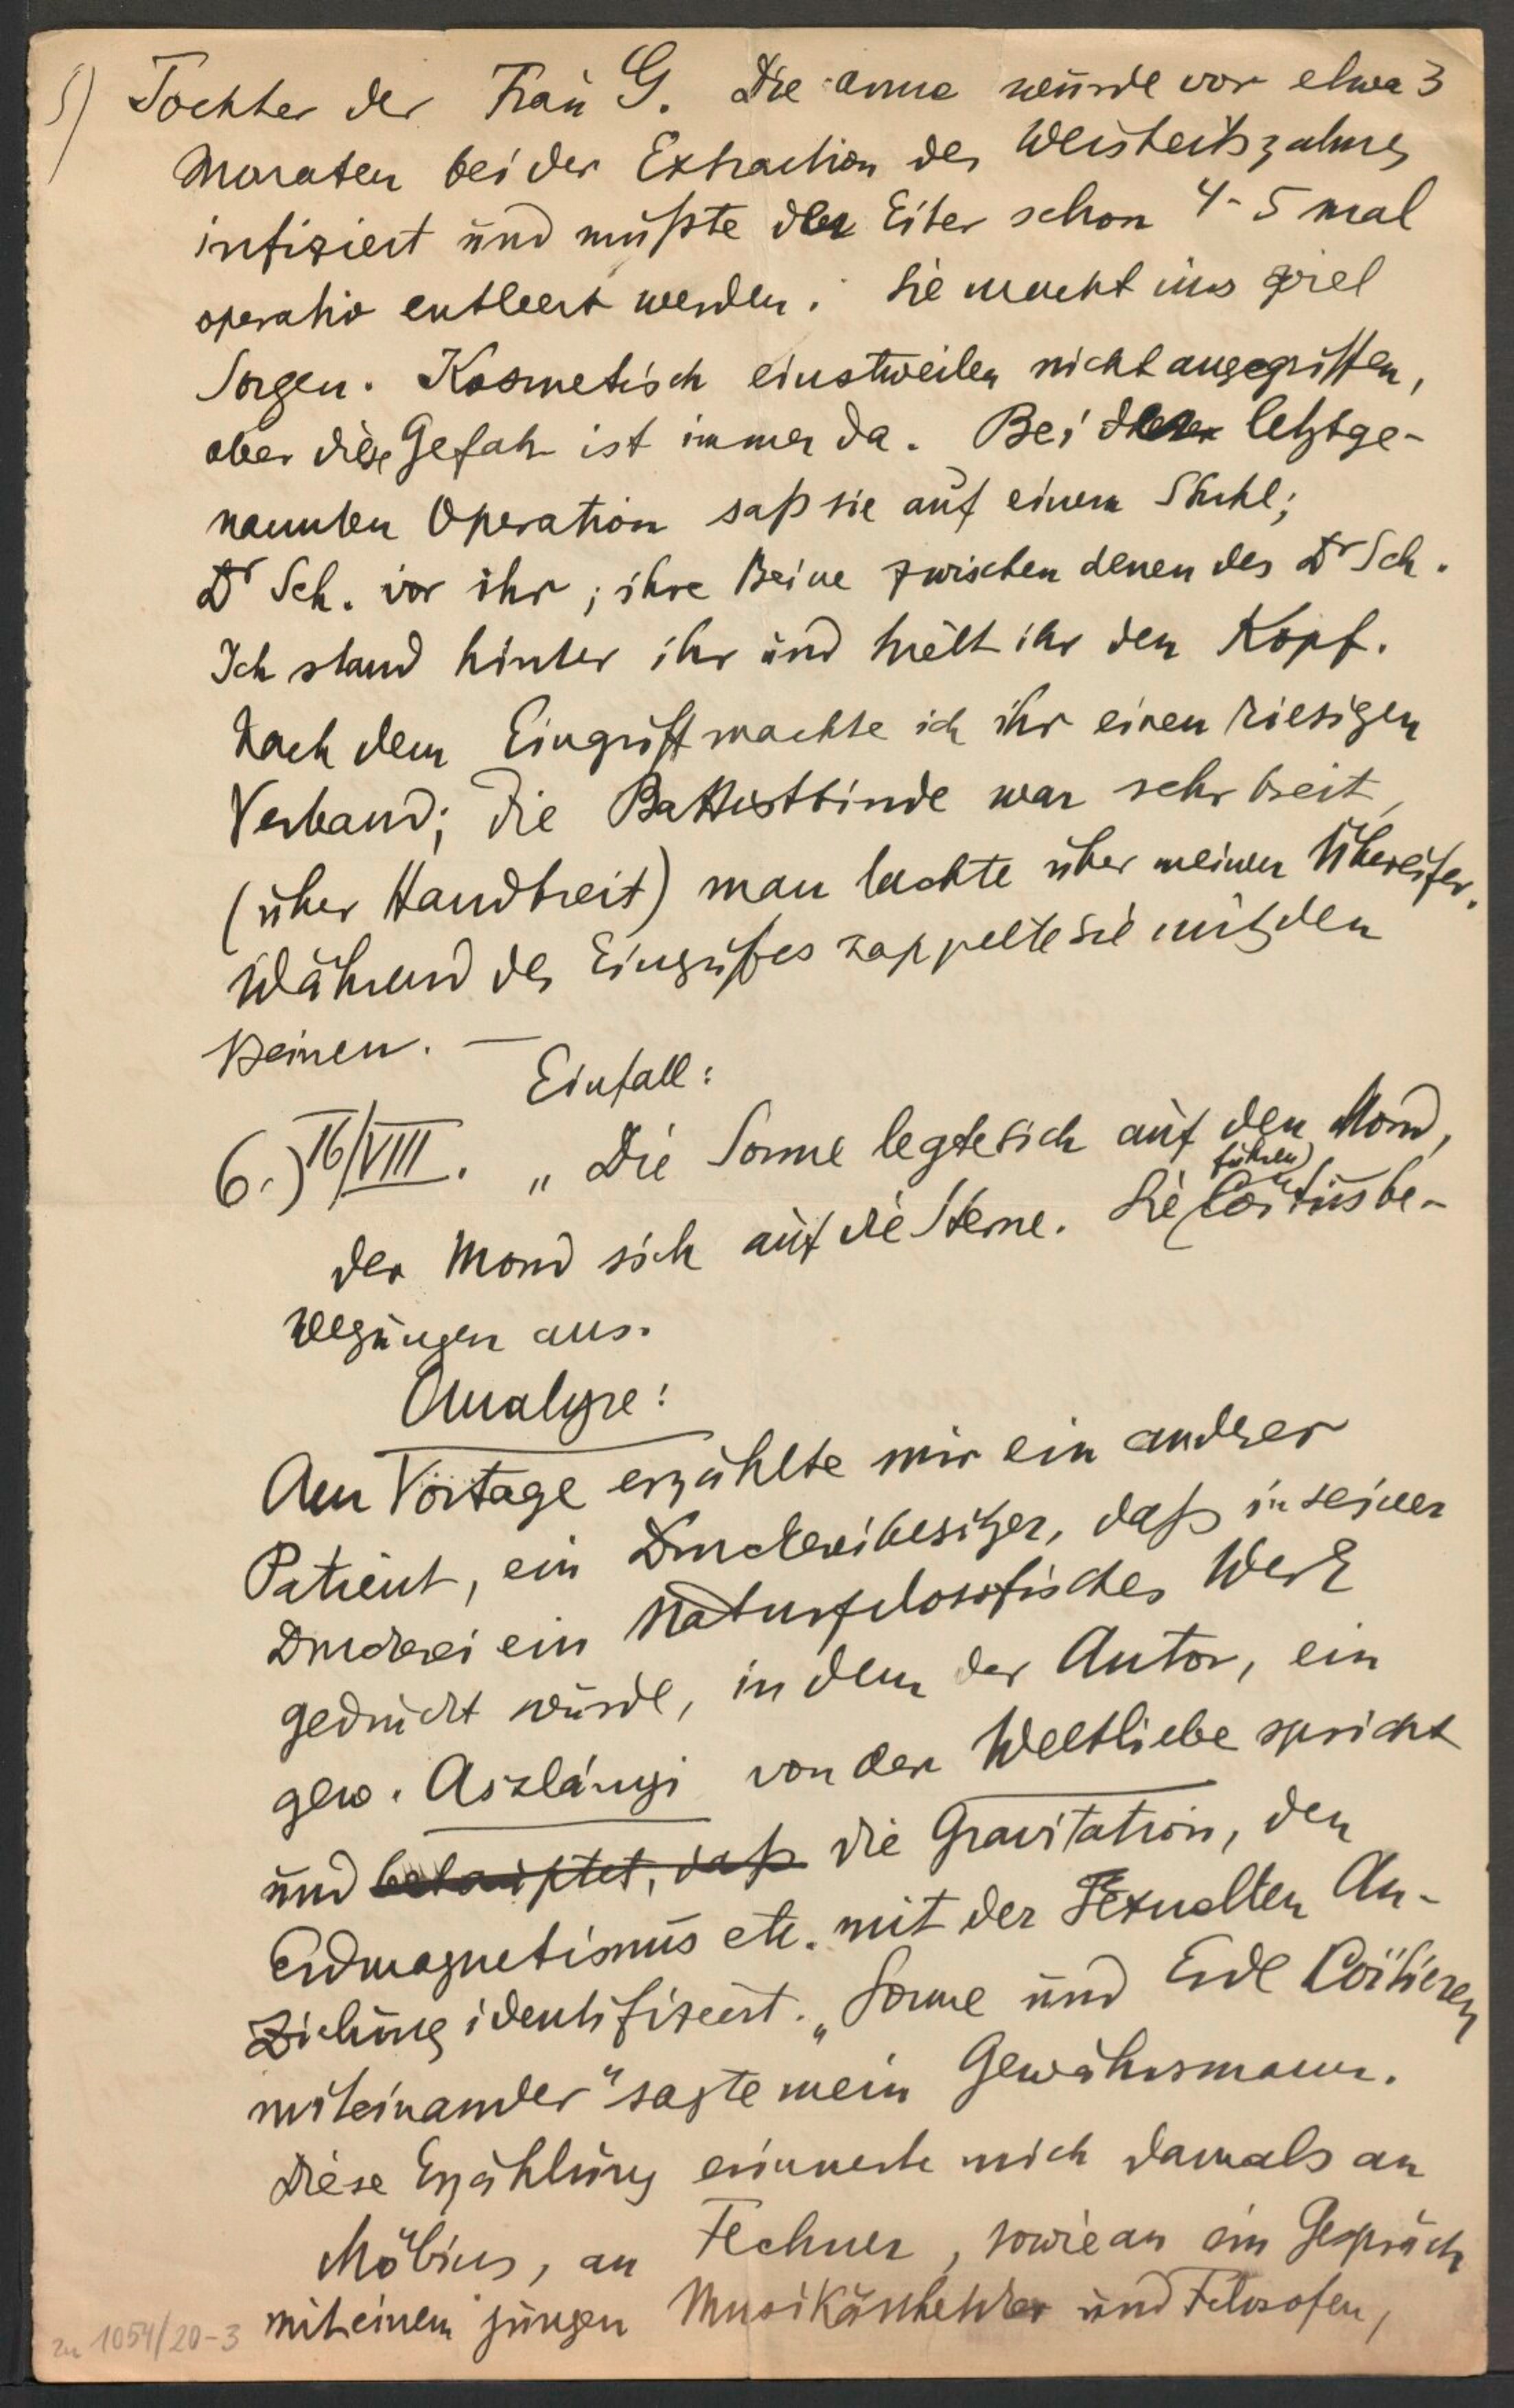 5) Tochter der Frau G. Die arme wurde vor etwa 3
Monaten bei der Extraction des Weisheitszahnes
infiziert und mußte der Eiter schon 4-5 mal
operativ entleert werden. Sie macht uns viel
Sorgen. Kosmetisch einstweilen nicht angegriffen,
aber diese Gefahr ist immer da. Bei der letztge-
nannten Operation saß sie auf einem Stuhl;
Dr Sch. vor ihr; ihre Beine zwischen denen des Dr Sch.
Ich stand hinter ihr und hielt ihr den Kopf.
Nach dem Eingriff machte ich ihr einen riesigen
Verband; die Battistbinde war sehr breit,
(über Handbreit) man lachte über meinen Übereifer.
Während des Eingriffes zappelte sie mit den
Beinen. —
Einfall:
6.) 16/VIII. „Die Sonne legte sich auf den Mond,
der Mond sich auf die Sterne. Sie (führen) Coitusbe-
wegungen aus.
Analyse:
Am Vortage erzählte mir ein andrer
Patient, ein Druckereibesitzer, daß in seiner
Druckerei ein Naturfilosofisches Werk
gedruckt würde, in dem der Autor, ein
gew. Aszlányi von der Weltliebe spricht
und behauptet, daß die Gravitation, den
Erdmagnetismus etc. mit der Sexuellen An-
ziehung identifiziert. „Sonne und Erde Coitieren
miteinander“ sagte mein Gewährsmann.
Diese Erzählung erinnerte mich damals an
Möbius, an Fechner, sowie an ein Gespräch
mit einem jungen und Filosofen,
zu 1054/20-3